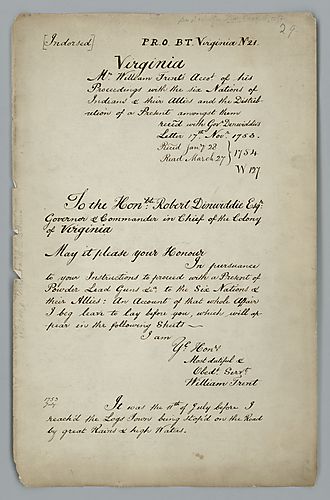 29
[Indorsed] P.R.O. B.T. Virginia No 21.
Virginia
Mr. William Trents Accot. of his
Proceedings with the six Nations of
Indians & their Allies and the Distri-
bution of a Present amongst them
recd with Govr Dinwiddies
Letter 17th Novr. 1753.
Recd Jany 28
Read March 27 } 1754
W 127
To the Honble Robert Dinwiddie Esqr.
Governor & Commander in Chief of the Colony
of Virginia
May it please your Honour
In pursuance
to your Instructions to proceed with a Present of
Powder Lead Guns &ca. to the Six Nations &
their Allies: An Account of that whole Affair
I beg leave to lay before you, which will ap-
pear in the following Sheets —
I am
Yr. Honrs
Most dutiful &
Obedt. Servt.
William Trent
1753
July
It was the 11th of July before I
reach'd the Logs Town being stop'd on the Road
by great Rains & high Waters.